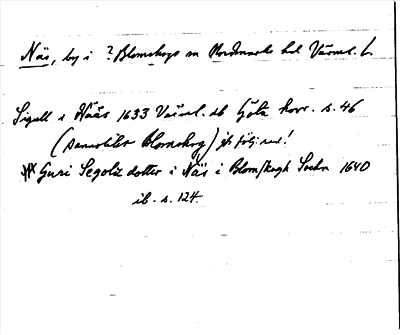 Näs, by i ? Blomskogs sn Nordmarks hd Värml. l.
Sigull i Nääs 1633 Värml. db Göta hovr. s. 46
(sannolikt Blomskog) jfr följ. rad!
Guri Segolz dotter i Näs i Blomskogh Sochn 1640
ib. s. 124.